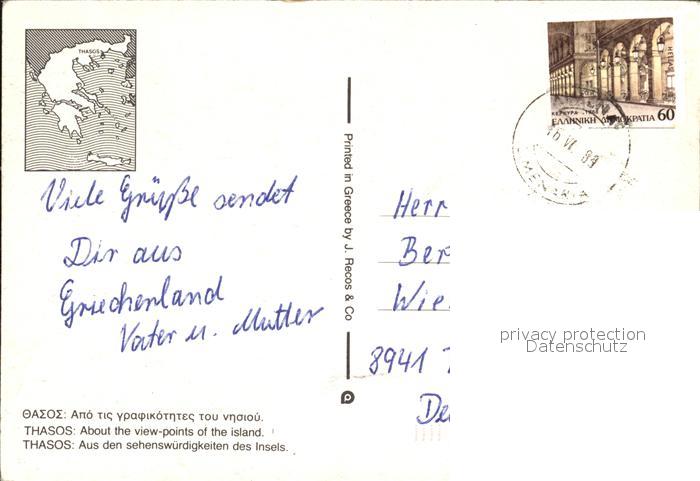 THASOS
HELLAS
ΚΕΡΚΥΡΑ
ΕΛΛΗΝΙΚΗ ΔΗΜΟΚΡΑΤΙΑ 60
16 VI 89
Viele Grüße sendet
Dir aus
Griechenland
Vater u. Mutter
Printed in Greece by J. Recos & Co
Herr
Ber
Wie
8941
De
privacy protection
Datenschutz
ΘΑΣΟΣ: Από τις γραφικότητες του νησιού.
THASOS: About the view-points of the island.
THASOS: Aus den sehenswürdigkeiten des Insels.